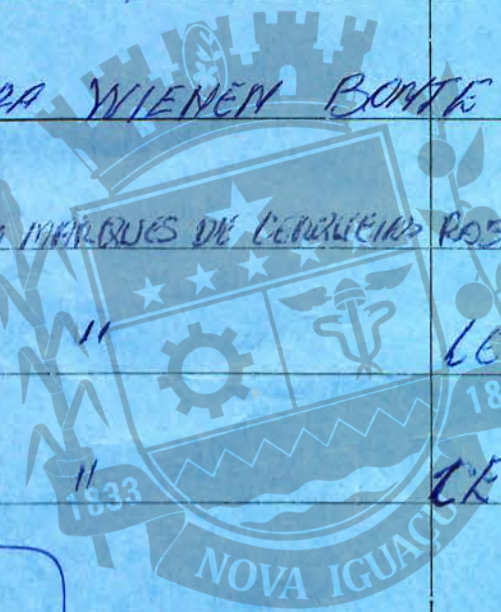 RA WIENEN BONTE
MARQUES DE CERQUEIRA ROS
" LE
" CE
1833
18
NOVA IGUAÇU